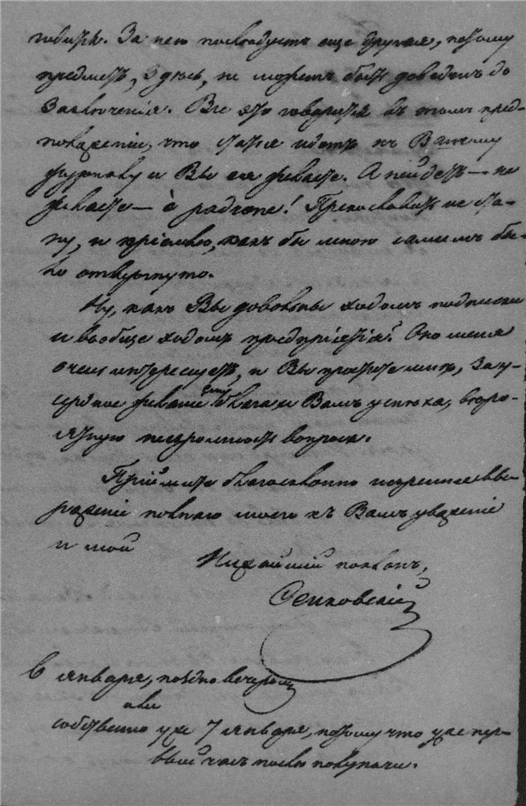 говить. За нею последуетъ еще другая, потому
предметъ, здѣсь, не можетъ быть доведенъ до
заключенія. Все это говорится въ томъ пред-
положеніи, что статья идетъ къ Вашему
журналу и Вы ея желаете. А нейдетъ — не
желаете — à radrone! Прекословить не ста-
ну, и приму, какъ бы мною самимъ бы-
ло отвергнуто.
Ну, какъ Вы довольны ходомъ подписки
и вообще ходомъ предпріятія? Оно меня
очень интересуетъ, и Вы простите мнѣ, за ис-
креннее желаніе блага и Вамъ успѣха,
нескромность вопроса.
Приймите благосклонно искреннее вы-
раженіе полнаго моего къ Вамъ уваженія
и мой
Нижайшій поклонъ,
Сенковскій
6 января, поздно вечеромъ
или
собственно уже 7 января, потому что уже пер-
вый часъ послѣ полуночи.